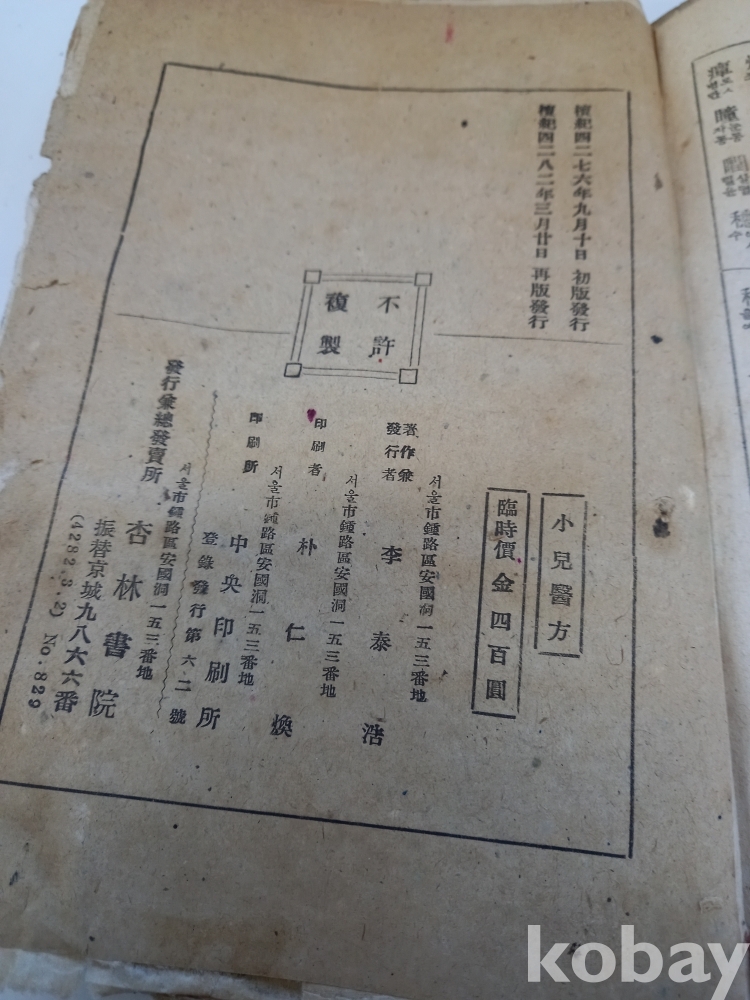 檀紀四二七六年九月十日 初版發行
檀紀四二八二年三月廿日 再版發行
不許
複製
小兒醫方
臨時價 金四百圓
서울市鍾路區安國洞一五三番地
著作兼
發行者 李泰浩
서울市鍾路區安國洞一五三番地
印刷者 朴仁煥
서울市鍾路區安國洞一五三番地
印刷所 中央印刷所
登錄發行第六二號
서울市鍾路區安國洞一五三番地
發行兼總發賣所 杏林書院
振替京城九八六六番
(4282.3.2) No.829
kobay